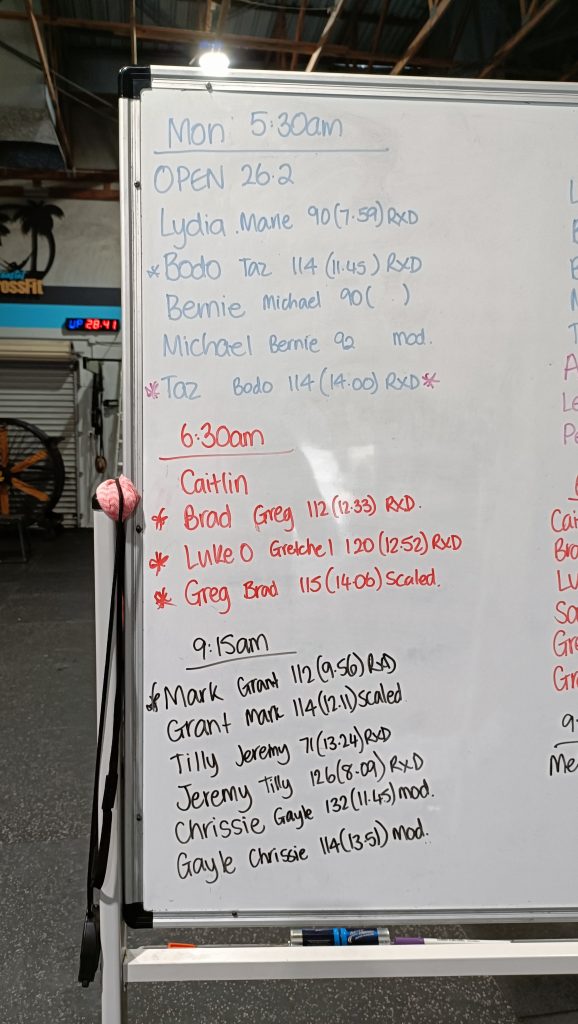 Mon 5:30am
OPEN 26.2
Lydia Marie 90(7.59) RXD
*Bodo Taz 114 (11.45) RXD
Bernie Michael 90( )
Michael Bernie 92 mod.
*Taz Bodo 114(14.00) RXD*
6:30am
Caitlin
* Brad Greg 112(12.33) RXD.
* Luke O Gretchel 120(12:52) RXD
* Greg Brad 115(14.06) Scaled.
9:15am
*Mark Grant 112(9.56) RxD
Grant Mark 114(12.11) Scaled
Tilly Jeremy 71(13.24) RXD
Jeremy Tilly 126(8.09) RXD
Chrissie Gayle 132(11.45) mod.
Gayle Chrissie 114(13.51) mod.
UP 28:41